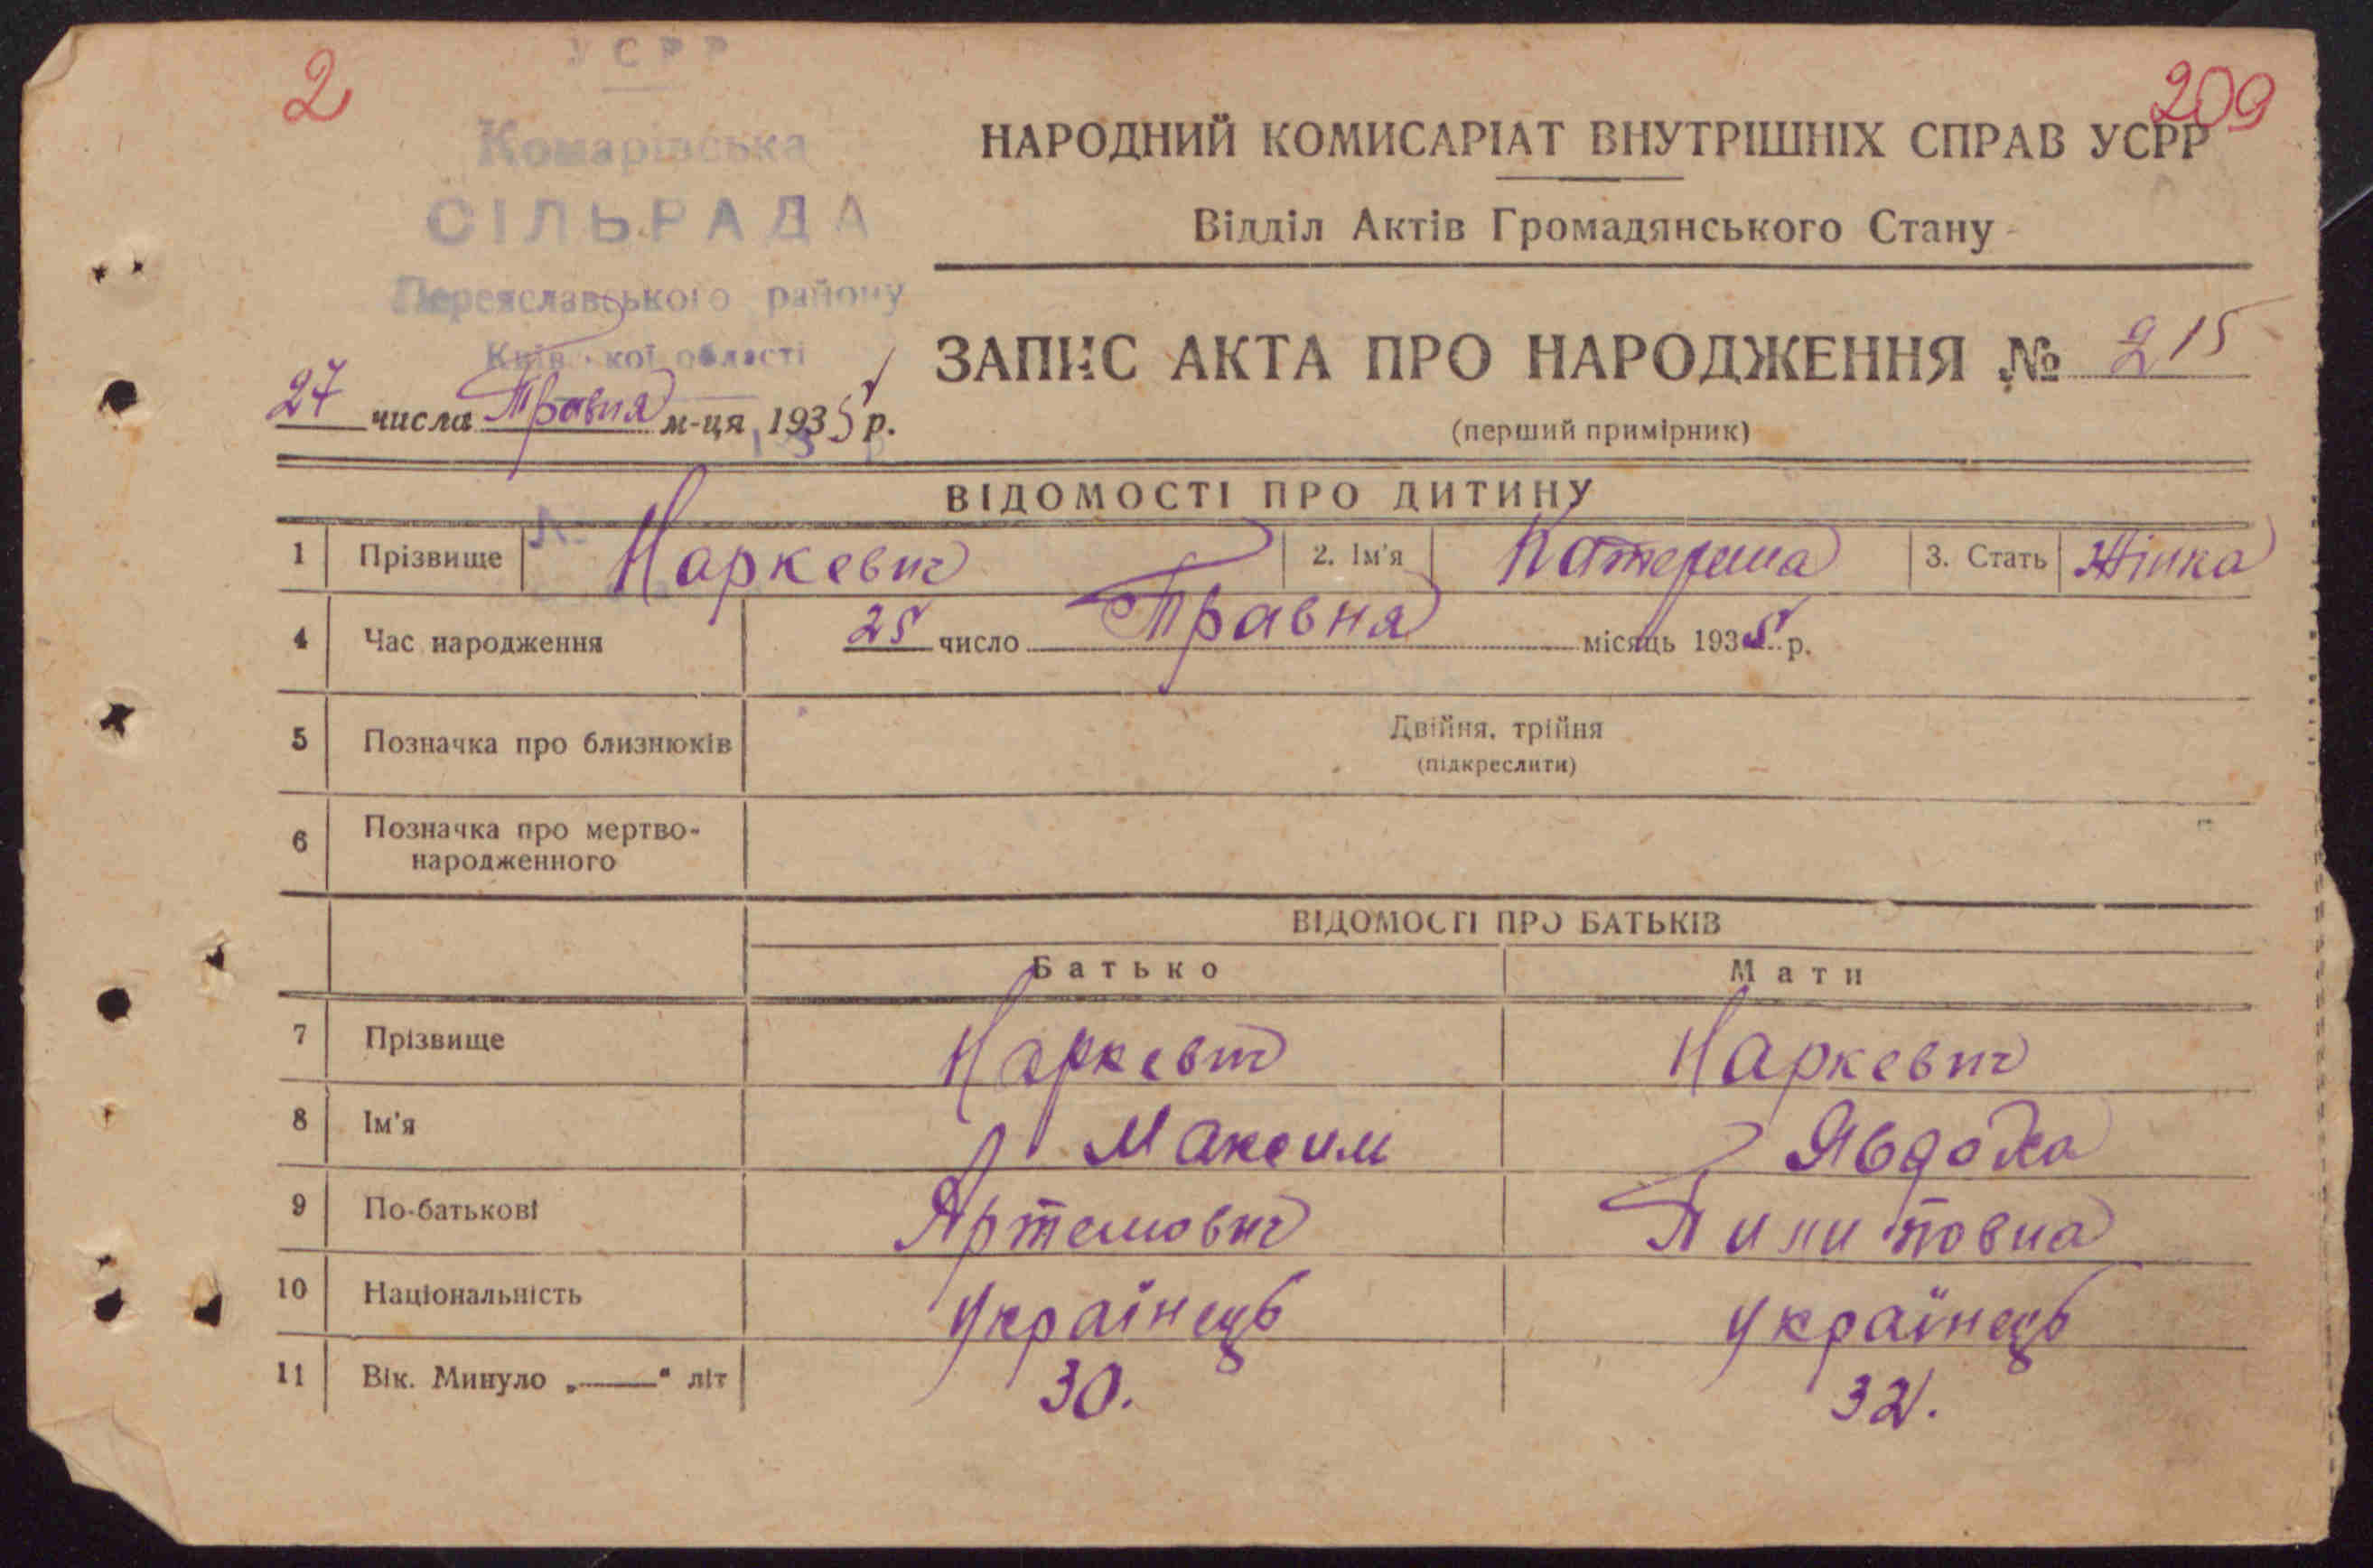 2
УСРР
209
Комарівська
СІЛЬРАДА
Переяславського району
Київської області
27 числа Травня м-ця 1935 р.
НАРОДНИЙ КОМИСАРІАТ ВНУТРІШНІХ СПРАВ УСРР
Відділ Актів Громадянського Стану
ЗАПИС АКТА ПРО НАРОДЖЕННЯ № 215
(перший примірник)
ВІДОМОСТІ ПРО ДИТИНУ
1 Прізвище Наркевич 2. Ім'я Катерина 3. Стать Жінка
4 Час народження 25 число Травня місяць 1935 р.
5 Позначка про близнюків Двійня, трійня
(підкреслити)
6 Позначка про мертво-
народженного
ВІДОМОСТІ ПРО БАТЬКІВ
Батько Мати
7 Прізвище Наркевич Наркевич
8 Ім'я Максим Явдоха
9 По-батькові Артемович Пилиповна
10 Національність Українець Українець
11 Вік. Минуло „——“ літ 30. 32.